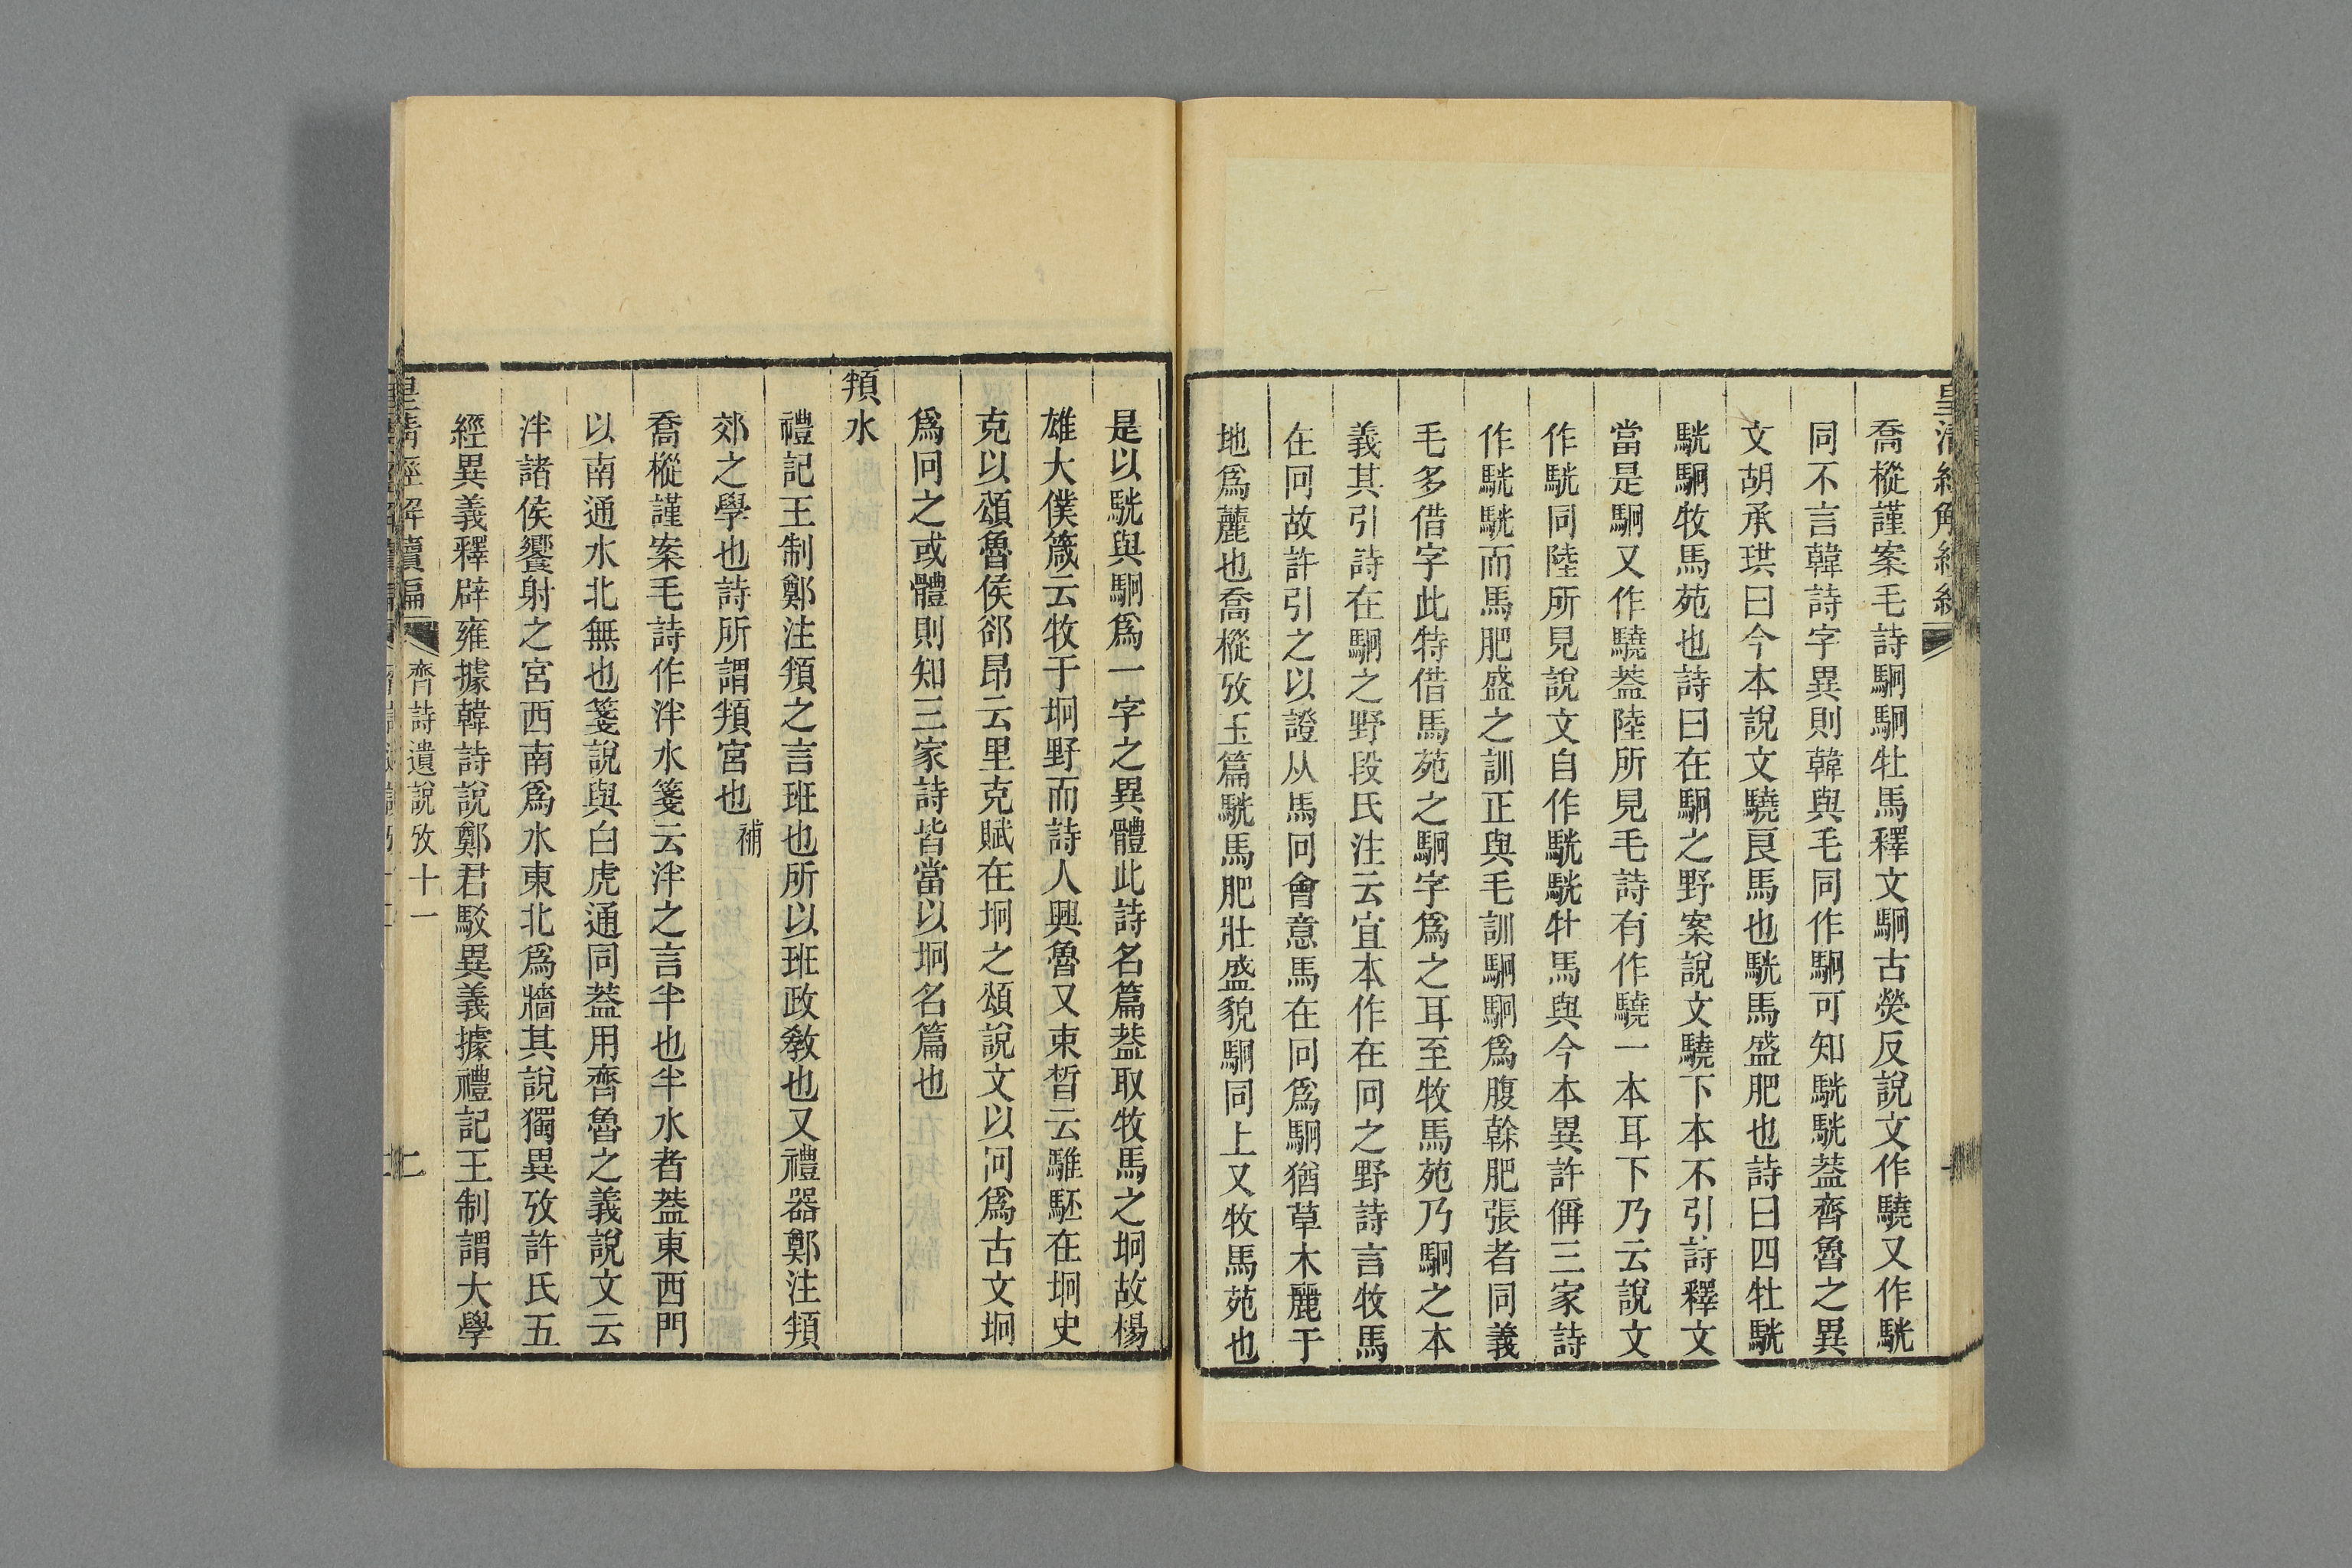 喬樅謹案毛詩駉駉牡馬釋文駉古熒反說文作驍又作駫
同不言韓詩字異則韓與毛同作駉可知駫駫葢齊魯之異
文胡承珙曰今本說文驍良馬也駫馬盛肥也詩曰四牡駫
駫駉牧馬苑也詩曰在駉之野案說文驍下本不引詩釋文
當是駉又作驍葢陸所見毛詩有作驍一本耳下乃云說文
作駫同陸所見說文自作駫駫牡馬與今本異許偁三家詩
作駫駫而馬肥盛之訓正與毛訓駉駉爲腹榦肥張者同義
毛多借字此特借馬苑之駉字爲之耳至牧馬苑乃駉之本
義其引詩在駉之野段氏注云宜本作在冋之野詩言牧馬
在冋故許引之以證从馬冋會意馬在冋爲駉猶草木麗于
地爲蘪也喬樅攷玉篇駫馬肥壯盛貌駉同上又牧馬苑也
是以駫與駉爲一字之異體此詩名篇葢取牧馬之坰故楊
雄大僕箴云牧于坰野而詩人興魯又束晳云騅駓在坰史
克以頌魯侯郤昂云里克賦在坰之頌說文以冋爲古文坰
爲冋之或體則知三家詩皆當以坰名篇也
頖水
禮記王制鄭注頖之言班也所以班政教也又禮器鄭注頖
郊之學也詩所謂頖宮也補
喬樅謹案毛詩作泮水箋云泮之言半也半水者葢東西門
以南通水北無也箋說與白虎通同葢用齊魯之義說文云
泮諸侯饗射之宮西南爲水東北爲牆其說獨異攷許氏五
經異義釋辟雍據韓詩說鄭君駁異義據禮記王制謂大學
皇清經解續編 齊詩遺說攷十一 二